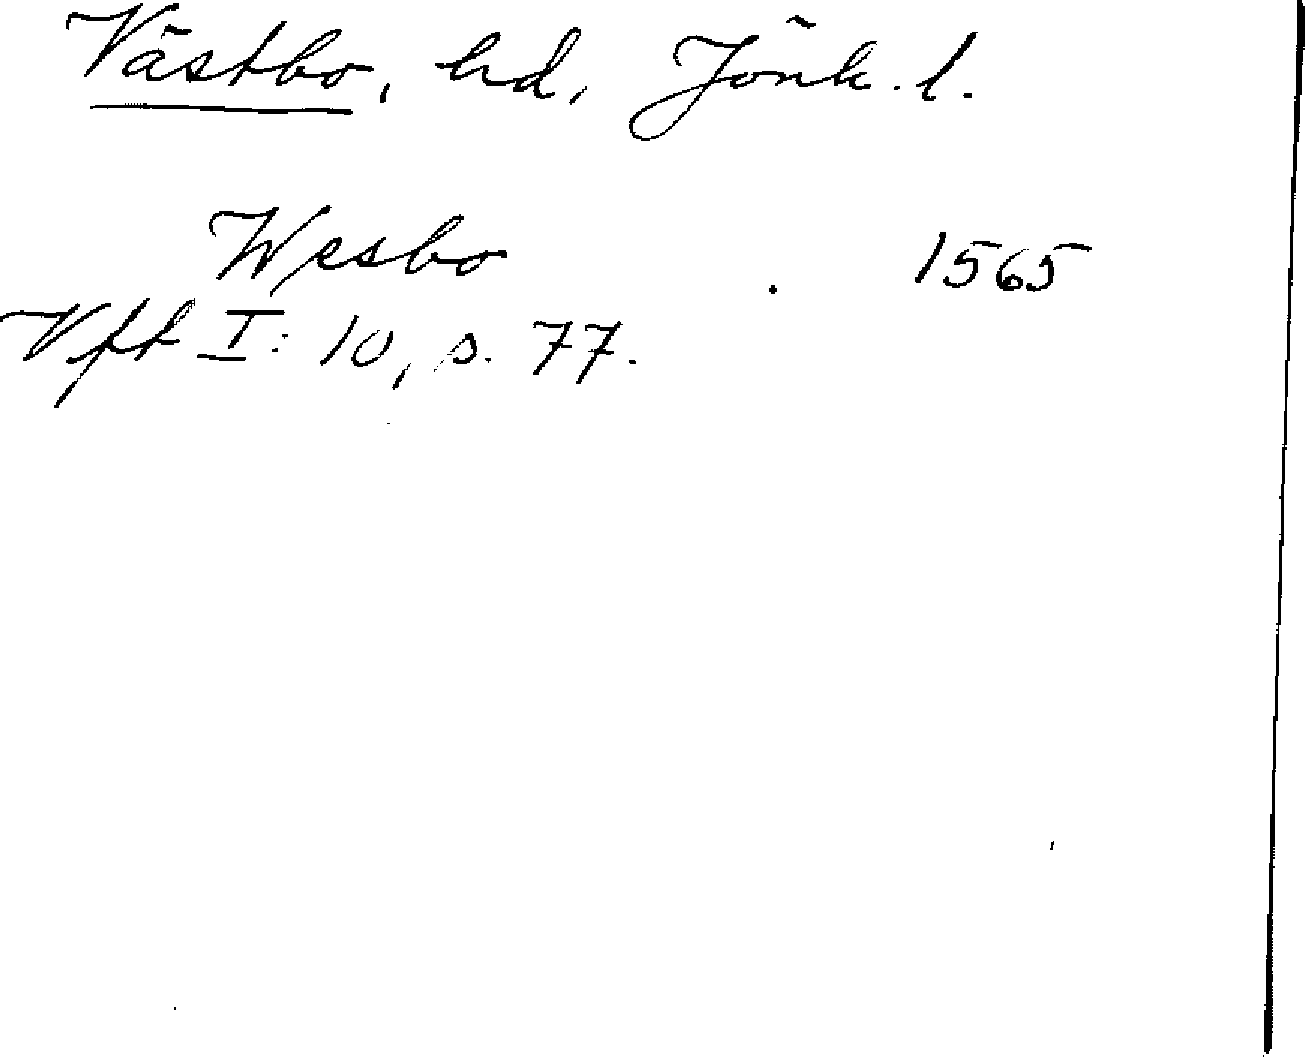 Västbo, hd, Jönk. l.
Wesbo 1565
Vft I: 10, s. 77.